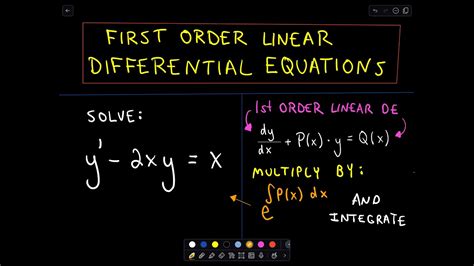 FIRST ORDER LINEAR
DIFFERENTIAL EQUATIONS
SOLVE:
y' - 2xy = x
1st ORDER LINEAR DE
dy/dx + P(x) · y = Q(x)
MULTIPLY BY:
e^∫P(x) dx
AND
INTEGRATE